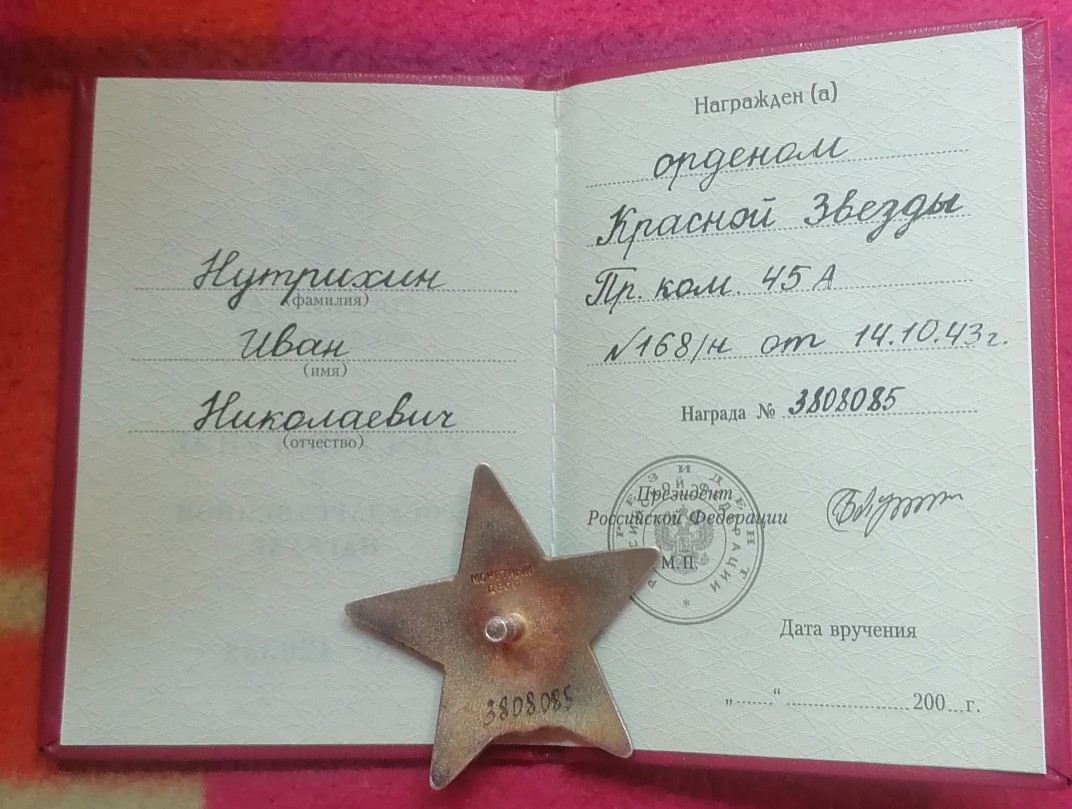 Нутрихин
(фамилия)
Иван
(имя)
Николаевич
(отчество)
Награжден (а)
орденом
Красной Звезды
Пр. ком. 45 А
№168/н от 14.10.43г.
Награда № 3808085
Президент
Российской Федерации
М.П.
ПРЕЗИДЕНТ
РОССИЙСКОЙ ФЕДЕРАЦИИ
Дата вручения
„ “ 200 г.
МОНЕТНЫЙ
ДВОР
3808085